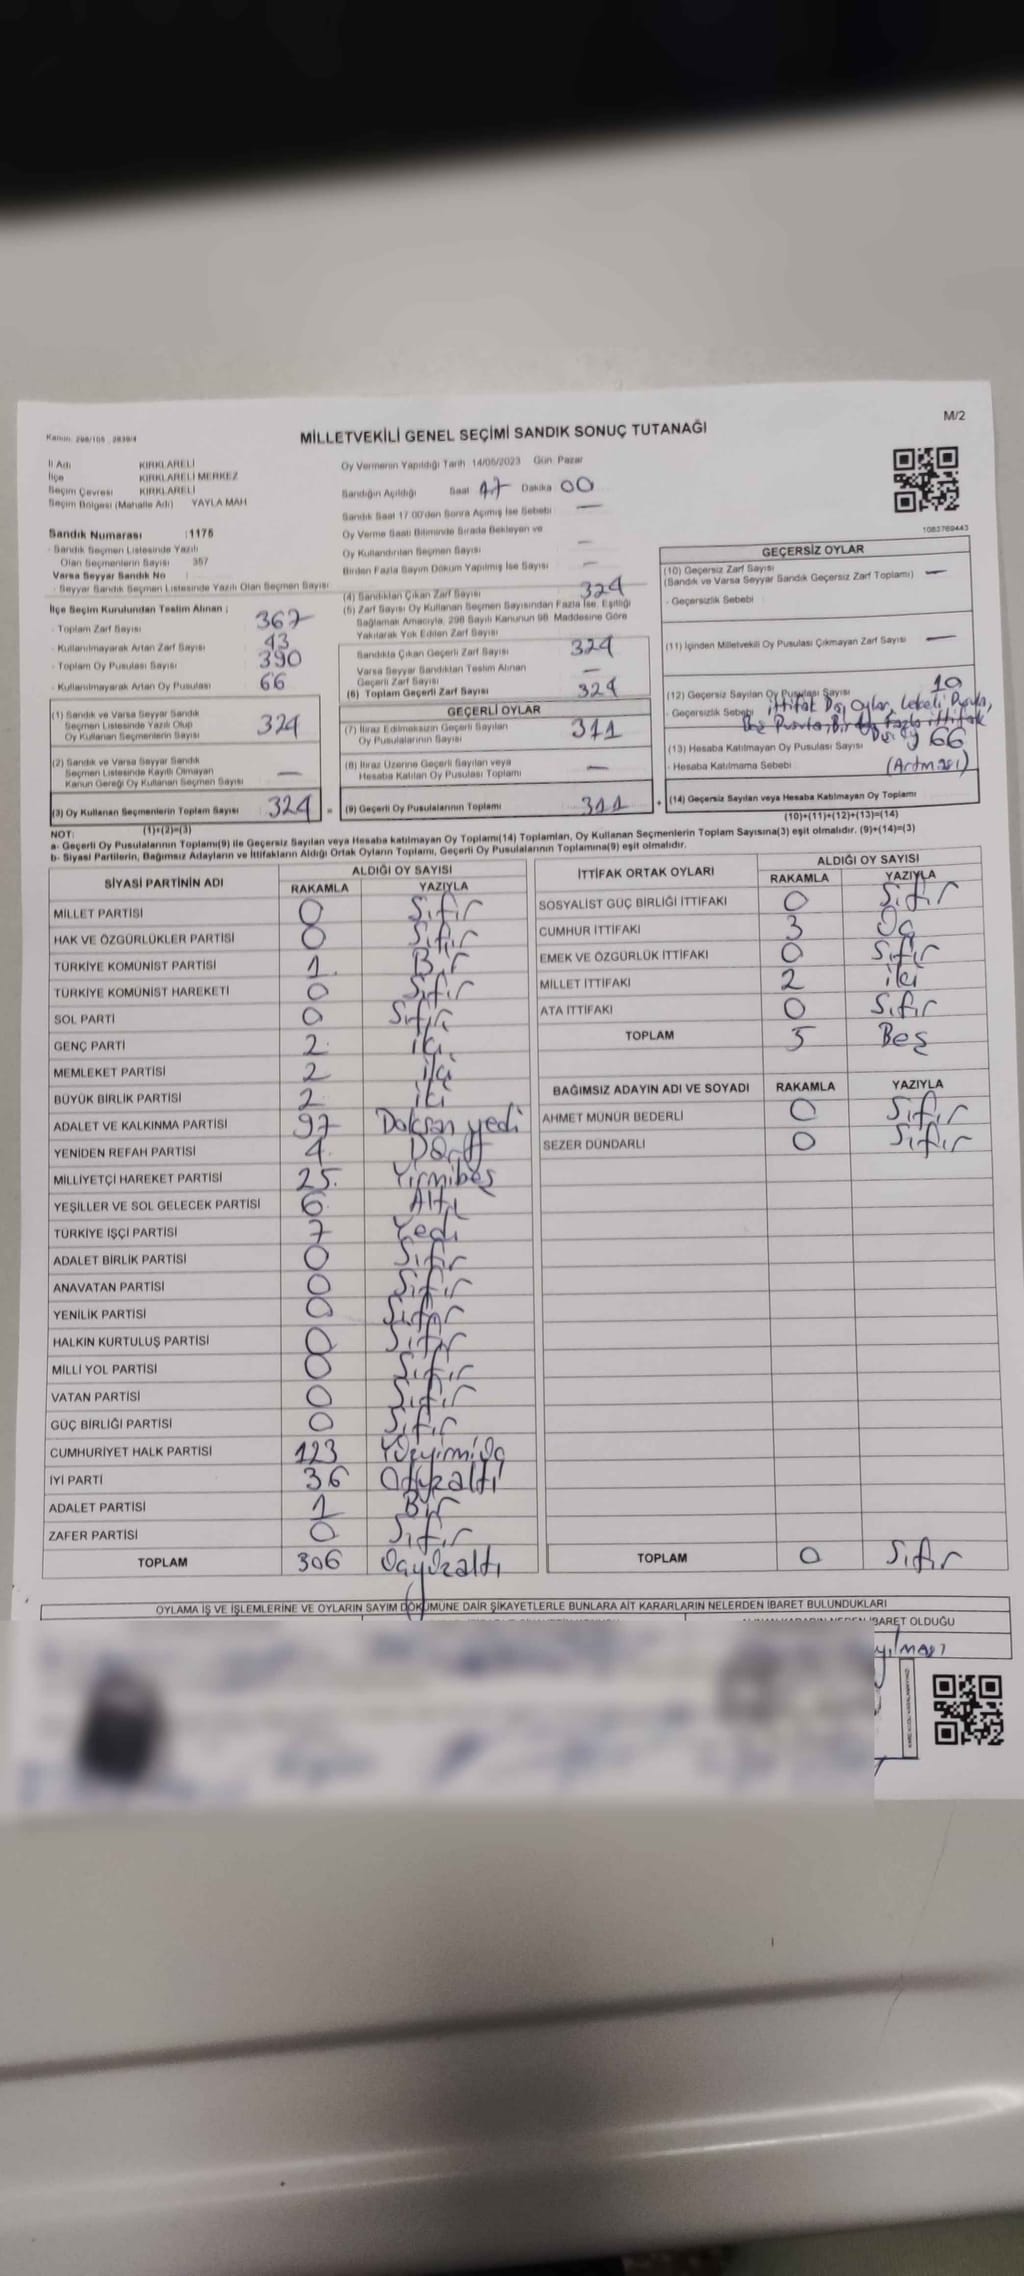 M/2
Kanun: 298/105 , 2839/4
MİLLETVEKİLİ GENEL SEÇİMİ SANDIK SONUÇ TUTANAĞI
İl Adı KIRKLARELİ
İlçe KIRKLARELİ MERKEZ
Seçim Çevresi KIRKLARELİ
Seçim Bölgesi (Mahalle Adı) YAYLA MAH
Sandık Numarası :1176
- Sandık Seçmen Listesinde Yazılı
Olan Seçmenlerin Sayısı 357
Varsa Seyyar Sandık No
- Seyyar Sandık Seçmen Listesinde Yazılı Olan Seçmen Sayısı
İlçe Seçim Kurulundan Teslim Alınan ;
- Toplam Zarf Sayısı 367
- Kullanılmayarak Artan Zarf Sayısı 43
- Toplam Oy Pusulası Sayısı 390
- Kullanılmayarak Artan Oy Pusulası 66
(1) Sandık ve Varsa Seyyar Sandık
Seçmen Listesinde Yazılı Olup
Oy Kullanan Seçmenlerin Sayısı 324
(2) Sandık ve Varsa Seyyar Sandık
Seçmen Listesinde Kayıtlı Olmayan
Kanun Gereği Oy Kullanan Seçmen Sayısı —
(3) Oy Kullanan Seçmenlerin Toplam Sayısı 324 =
(1)+(2)=(3)
Oy Vermenin Yapıldığı Tarih 14/05/2023 Gün Pazar
Sandığın Açıldığı Saat 17 Dakika 00
Sandık Saat 17.00'den Sonra Açılmış İse Sebebi —
Oy Verme Saati Bitiminde Sırada Bekleyen ve
Oy Kullandırılan Seçmen Sayısı —
Birden Fazla Sayım Döküm Yapılmış İse Sayısı —
(4) Sandıktan Çıkan Zarf Sayısı 324
(5) Zarf Sayısı Oy Kullanan Seçmen Sayısından Fazla İse, Eşitliği
Sağlamak Amacıyla, 298 Sayılı Kanunun 98. Maddesine Göre
Yakılarak Yok Edilen Zarf Sayısı
Sandıkta Çıkan Geçerli Zarf Sayısı 324
Varsa Seyyar Sandıktan Teslim Alınan
Geçerli Zarf Sayısı —
(6) Toplam Geçerli Zarf Sayısı 324
GEÇERLİ OYLAR
(7) İtiraz Edilmeksizin Geçerli Sayılan
Oy Pusulalarının Sayısı 311
(8) İtiraz Üzerine Geçerli Sayılan veya
Hesaba Katılan Oy Pusulası Toplamı —
(9) Geçerli Oy Pusulalarının Toplamı 311 +
1083769443
GEÇERSİZ OYLAR
(10) Geçersiz Zarf Sayısı
(Sandık ve Varsa Seyyar Sandık Geçersiz Zarf Toplamı) —
- Geçersizlik Sebebi
(11) İçinden Milletvekili Oy Pusulası Çıkmayan Zarf Sayısı —
(12) Geçersiz Sayılan Oy Pusulası Sayısı 10
- Geçersizlik Sebebi ittifak Dışı Oylar, Lekeli Pusula,
Boş Pusula, Birden Fazla ittifak
(13) Hesaba Katılmayan Oy Pusulası Sayısı 66
- Hesaba Katılmama Sebebi (Artması)
(14) Geçersiz Sayılan veya Hesaba Katılmayan Oy Toplamı
(10)+(11)+(12)+(13)=(14)
NOT:
a- Geçerli Oy Pusulalarının Toplamı(9) ile Geçersiz Sayılan veya Hesaba katılmayan Oy Toplamı(14) Toplamları, Oy Kullanan Seçmenlerin Toplam Sayısına(3) eşit olmalıdır. (9)+(14)=(3)
b- Siyasi Partilerin, Bağımsız Adayların ve İttifakların Aldığı Ortak Oyların Toplamı, Geçerli Oy Pusulalarının Toplamına(9) eşit olmalıdır.
SİYASİ PARTİNİN ADI ALDIĞI OY SAYISI
RAKAMLA YAZIYLA
MİLLET PARTİSİ 0 Sıfır
HAK VE ÖZGÜRLÜKLER PARTİSİ 0 Sıfır
TÜRKİYE KOMÜNİST PARTİSİ 1 Bir
TÜRKİYE KOMÜNİST HAREKETİ 0 Sıfır
SOL PARTİ 0 Sıfır
GENÇ PARTİ 2 iki
MEMLEKET PARTİSİ 2 iki
BÜYÜK BİRLİK PARTİSİ 2 iki
ADALET VE KALKINMA PARTİSİ 97 Doksan yedi
YENİDEN REFAH PARTİSİ 4 Dört
MİLLİYETÇİ HAREKET PARTİSİ 25 Yirmibeş
YEŞİLLER VE SOL GELECEK PARTİSİ 6 Altı
TÜRKİYE İŞÇİ PARTİSİ 7 Yedi
ADALET BİRLİK PARTİSİ 0 Sıfır
ANAVATAN PARTİSİ 0 Sıfır
YENİLİK PARTİSİ 0 Sıfır
HALKIN KURTULUŞ PARTİSİ 0 Sıfır
MİLLİ YOL PARTİSİ 0 Sıfır
VATAN PARTİSİ 0 Sıfır
GÜÇ BİRLİĞİ PARTİSİ 0 Sıfır
CUMHURİYET HALK PARTİSİ 123 Yüzyirmiüç
İYİ PARTİ 36 Otuzaltı
ADALET PARTİSİ 1 Bir
ZAFER PARTİSİ 0 Sıfır
TOPLAM 306 Üçyüzaltı
İTTİFAK ORTAK OYLARI ALDIĞI OY SAYISI
RAKAMLA YAZIYLA
SOSYALİST GÜÇ BİRLİĞİ İTTİFAKI 0 Sıfır
CUMHUR İTTİFAKI 3 Üç
EMEK VE ÖZGÜRLÜK İTTİFAKI 0 Sıfır
MİLLET İTTİFAKI 2 iki
ATA İTTİFAKI 0 Sıfır
TOPLAM 5 Beş
BAĞIMSIZ ADAYIN ADI VE SOYADI RAKAMLA YAZIYLA
AHMET MÜNÜR BEDERLİ 0 Sıfır
SEZER DÜNDARLI 0 Sıfır
TOPLAM 0 Sıfır
OYLAMA İŞ VE İŞLEMLERİNE VE OYLARIN SAYIM DÖKÜMÜNE DAİR ŞİKAYETLERLE BUNLARA AİT KARARLARIN NELERDEN İBARET BULUNDUKLARI
İBARET OLDUĞU